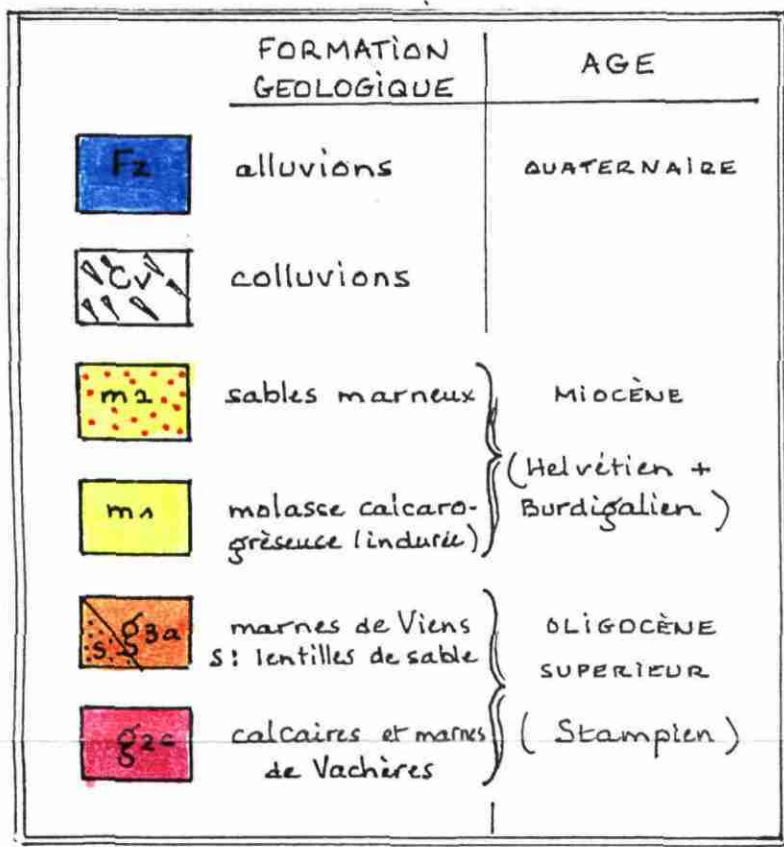 FORMATION
GEOLOGIQUE
AGE
Fz
alluvions
QUATERNAIRE
Cv
colluvions
m2
sables marneux
MIOCÈNE
(Helvétien +
Burdigalien)
m1
molasse calcaro-
grèseuce (indurée)
s g3a
marnes de Viens
s: lentilles de sable
OLIGOCÈNE
SUPERIEUR
(Stampien)
g2c
calcaires et marnes
de Vachères